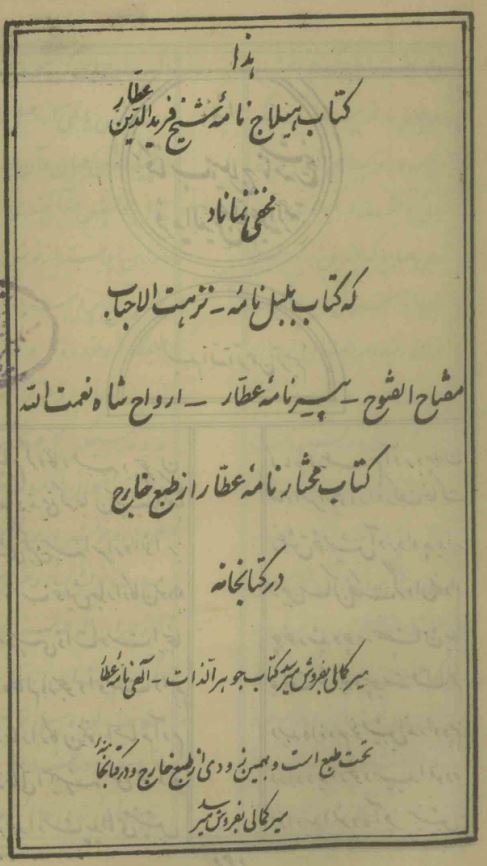 هذا
کتاب هیلاج نامهٔ شیخ فریدالدین عطار
مخفی نماناد
که کتاب بلبل نامه - نزهت الاحباب
مفتاح الفتوح - پسیرنامهٔ عطار - ارواح شاه نعمت الله
کتاب مختار نامهٔ عطار از طبع خارج
در کتابخانه
میرکمالی بفروش میرسد کتاب جوهرالذات - الهی نامهٔ عطار
تحت طبع است و بهمین زودی از طبع خارج و در کتابخانهٔ
میرکمالی بفروش میرسد